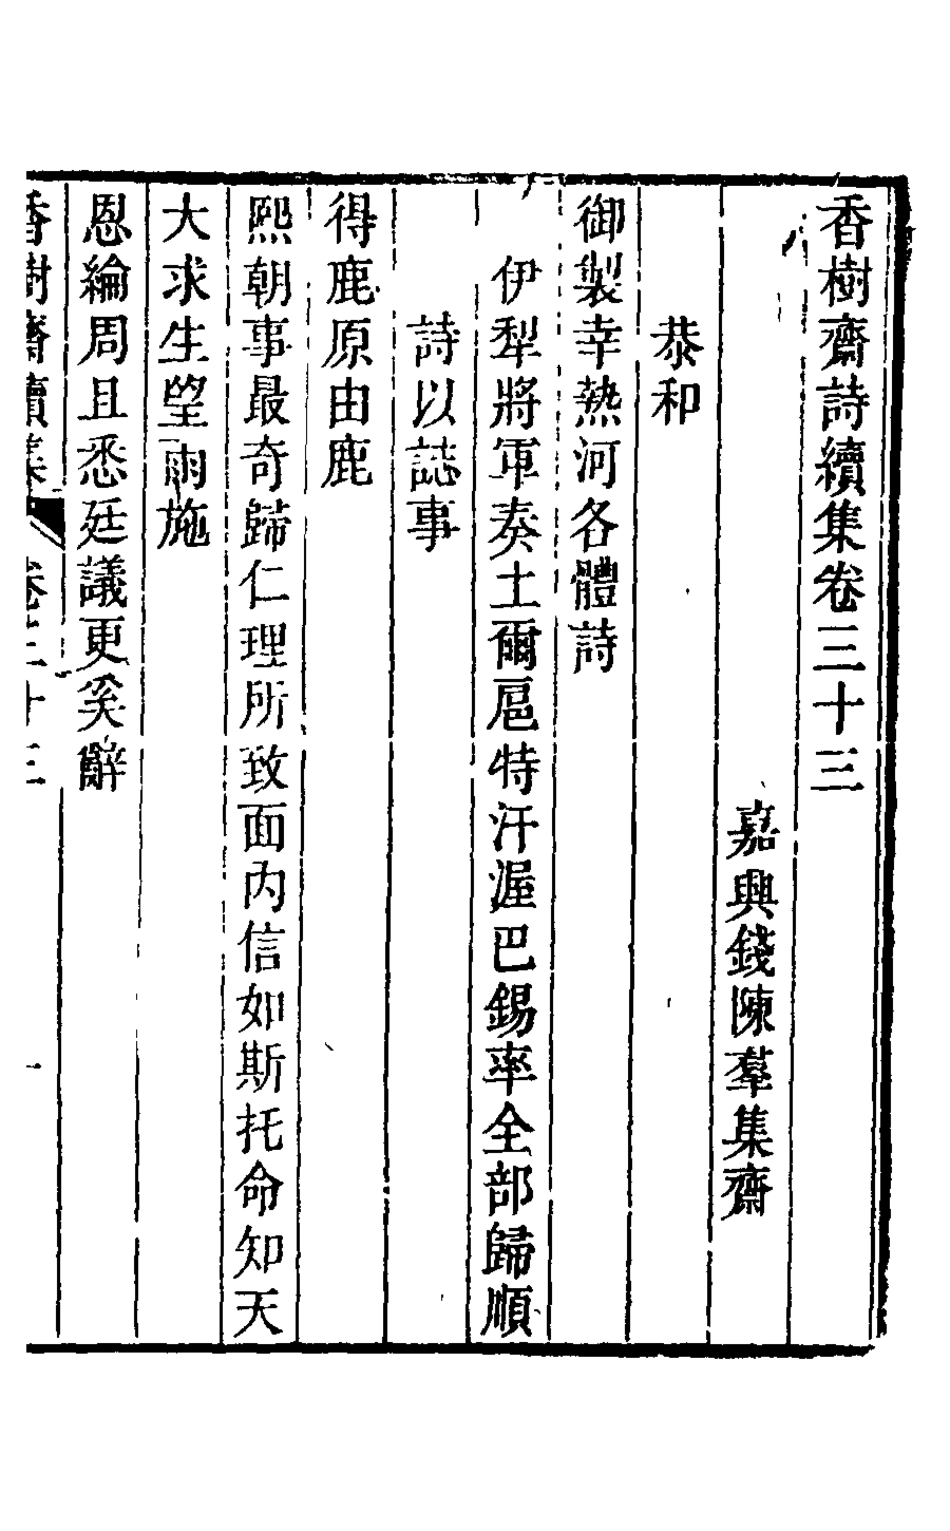 香樹齋詩續集卷三十三
嘉興錢陳羣集齋
恭和
御製幸熱河各體詩
伊犁將軍奏土爾扈特汗渥巴錫率全部歸順
詩以誌事
得鹿原由鹿
熙朝事最奇歸仁理所致面內信如斯托命知天
大求生望雨施
恩綸周且悉廷議更奚辭
香樹齋續集 卷三十三 一